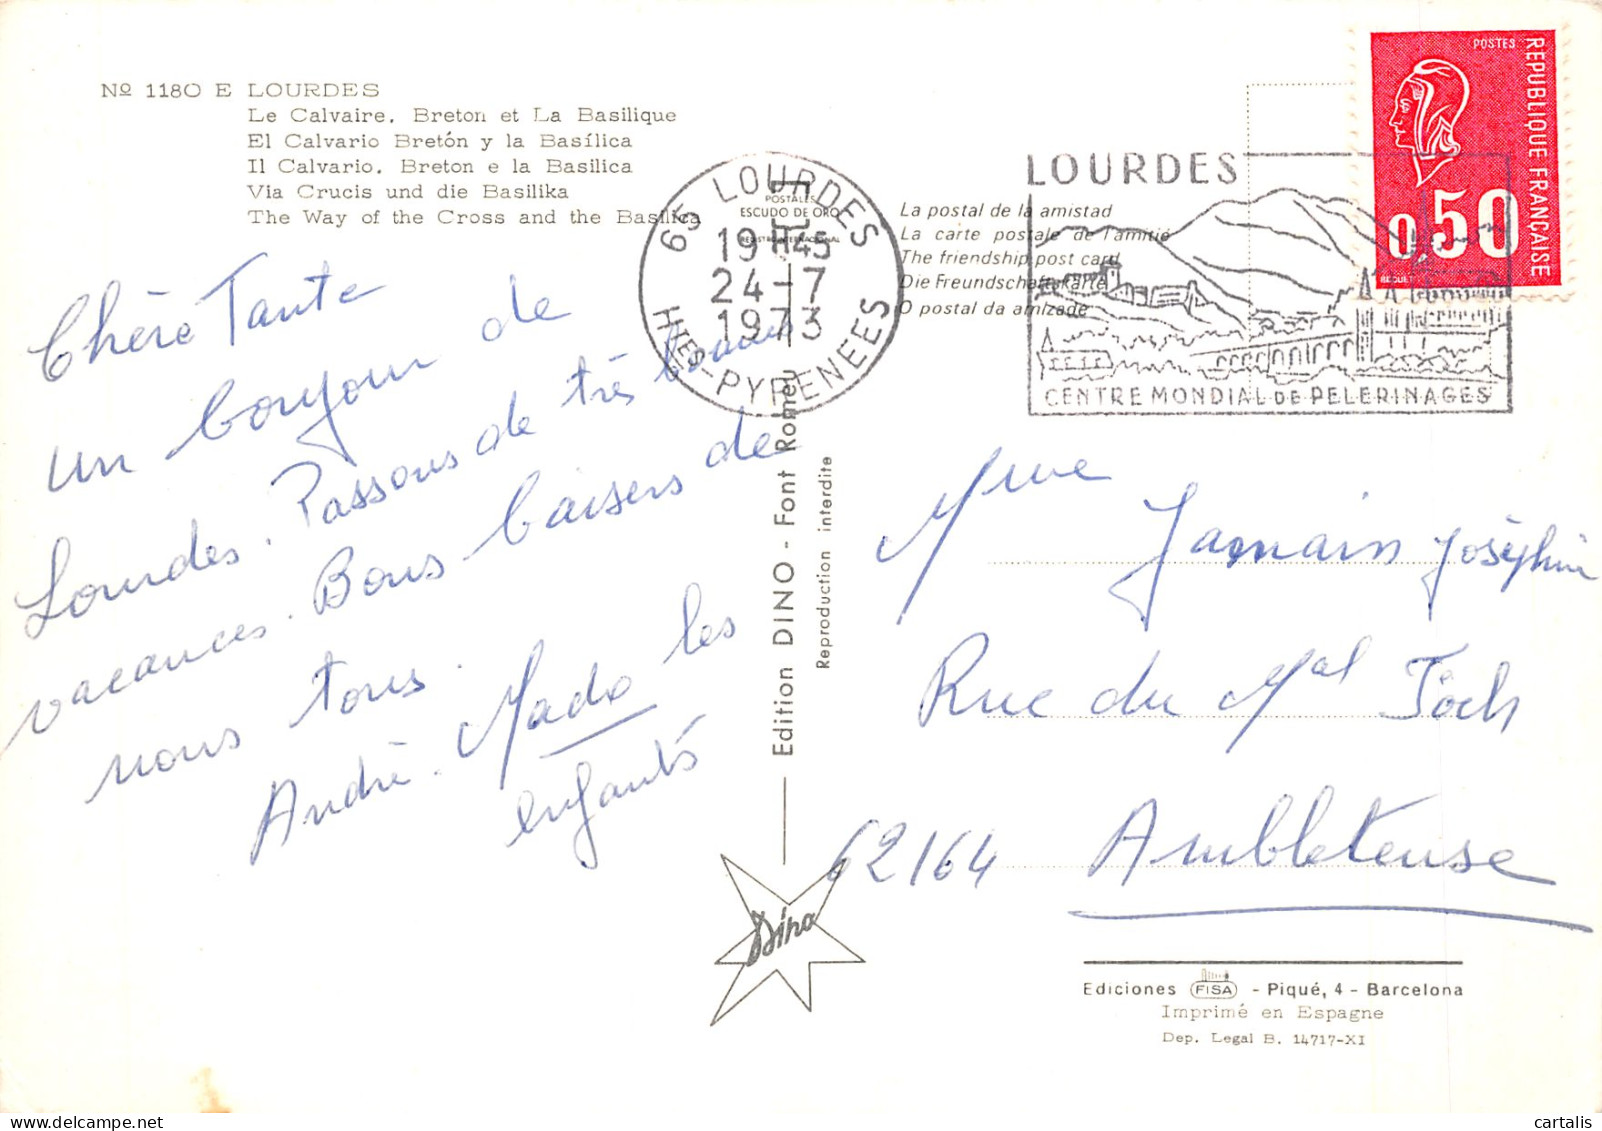 Nº 1180 E LOURDES
Le Calvaire, Breton et La Basilique
El Calvario Bretón y la Basílica
Il Calvario, Breton e la Basilica
Via Crucis und die Basilika
The Way of the Cross and the Basilica
Chère Tante
un bonjour de
Lourdes. Passons de très bonnes
vacances. Bons baisers de
nous tous.
André. Mado les
enfants
65 LOURDES
19H45
24-7
1973
HTES-PYRENEES
POSTALES
ESCUDO DE ORO
REGISTRO INTERNACIONAL
La postal de la amistad
La carte postale de l'amitié
The friendship post card
Die Freundschaftskarte
O postal da amizade
LOURDES
CENTRE MONDIAL DE PELERINAGES
POSTES
REPUBLIQUE FRANÇAISE
0,50
BEQUET
Edition DINO - Font Romeu
Reproduction interdite
Dino
Mme Jamain Joséphine
Rue du Mal Foch
62164 Ambleteuse
Ediciones FISA - Piqué, 4 - Barcelona
Imprimé en Espagne
Dep. Legal B. 14717-XI
cartalis